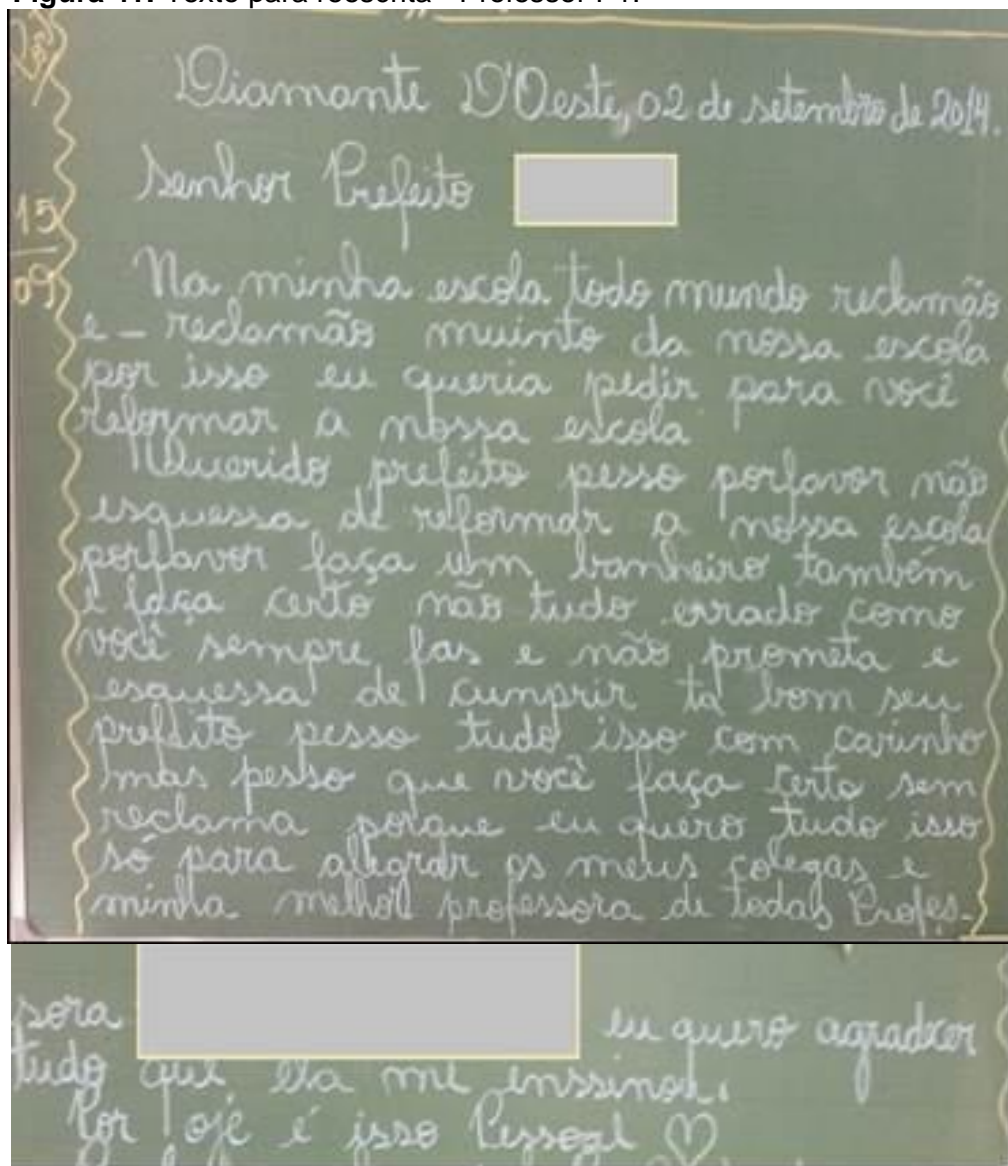 Diamante D'Oeste, 02 de setembro de 2014.
Senhor Prefeito
15
09
Na minha escola todo mundo reclamão
e - reclamão muinto da nossa escola
por isso eu queria pedir para você
reformar a nossa escola
Querido prefeito pesso porfavor não
esquessa de reformar a nossa escola
porfavor faça um banheiro também
e faça certo não tudo errado como
você sempre fas e não prometa e
esquessa de cumprir ta bom seu
prefeito pesso tudo isso com carinho
mas pesso que você faça certo sem
reclama porque eu quero tudo isso
só para alegrar os meus colegas e
minha melhor professora de todas Profes-
sora eu quero agradecer
tudo que ela me enssinou.
Por oje é isso Pessoal ♡